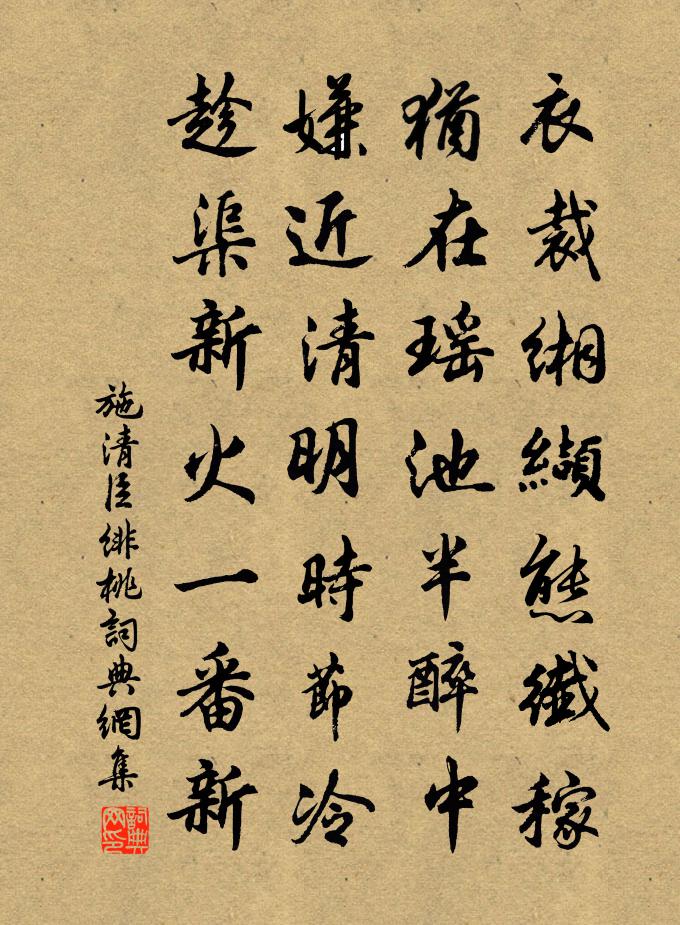 衣裁緗纈態纖稼
猶在瑶池半醉中
嫌近清明時節冷
趁渠新火一番新
施清臣緋桃詞典網集
詞典
网印